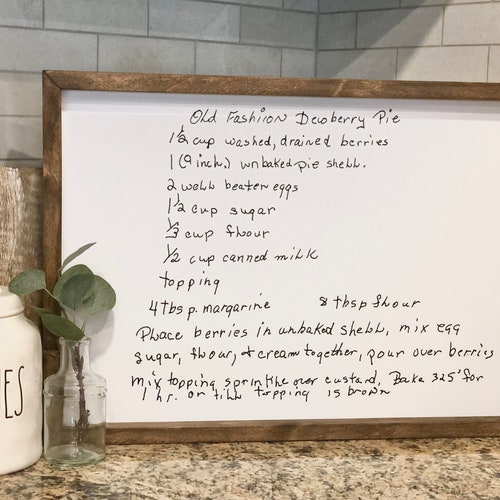 Old Fashion Dewberry Pie
1 1/2 cup washed, drained berries
1 (9 inch) unbaked pie shell.
2 well beaten eggs
1 1/2 cup sugar
1/3 cup flour
1/2 cup canned milk
topping
4 tbsp. margarine 8 tbsp flour
Place berries in unbaked shell, mix egg
sugar, flour, & cream together, pour over berries
mix topping sprinkle over custard, Bake 325° for
1 hr. or till topping is brown
IES